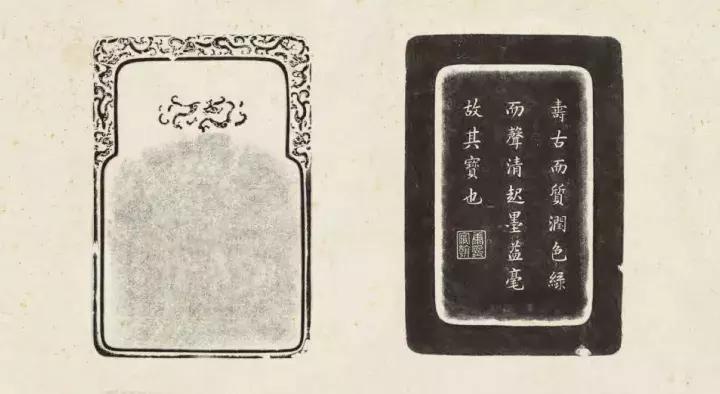 壽古而質潤色綠
而聲清起墨益毫
故其寶也
康熙
宸翰